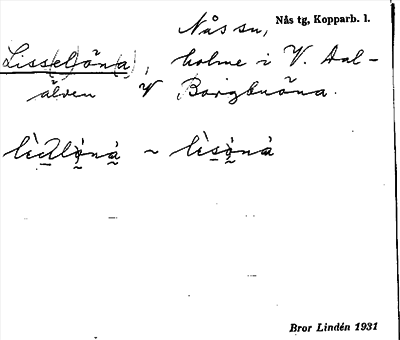 Nås sn, Nås tg, Kopparb. l.
Liss(el)ön(a), holme i V. Dal-
älven V Borgbuöna.
~
Bror Lindén 1931